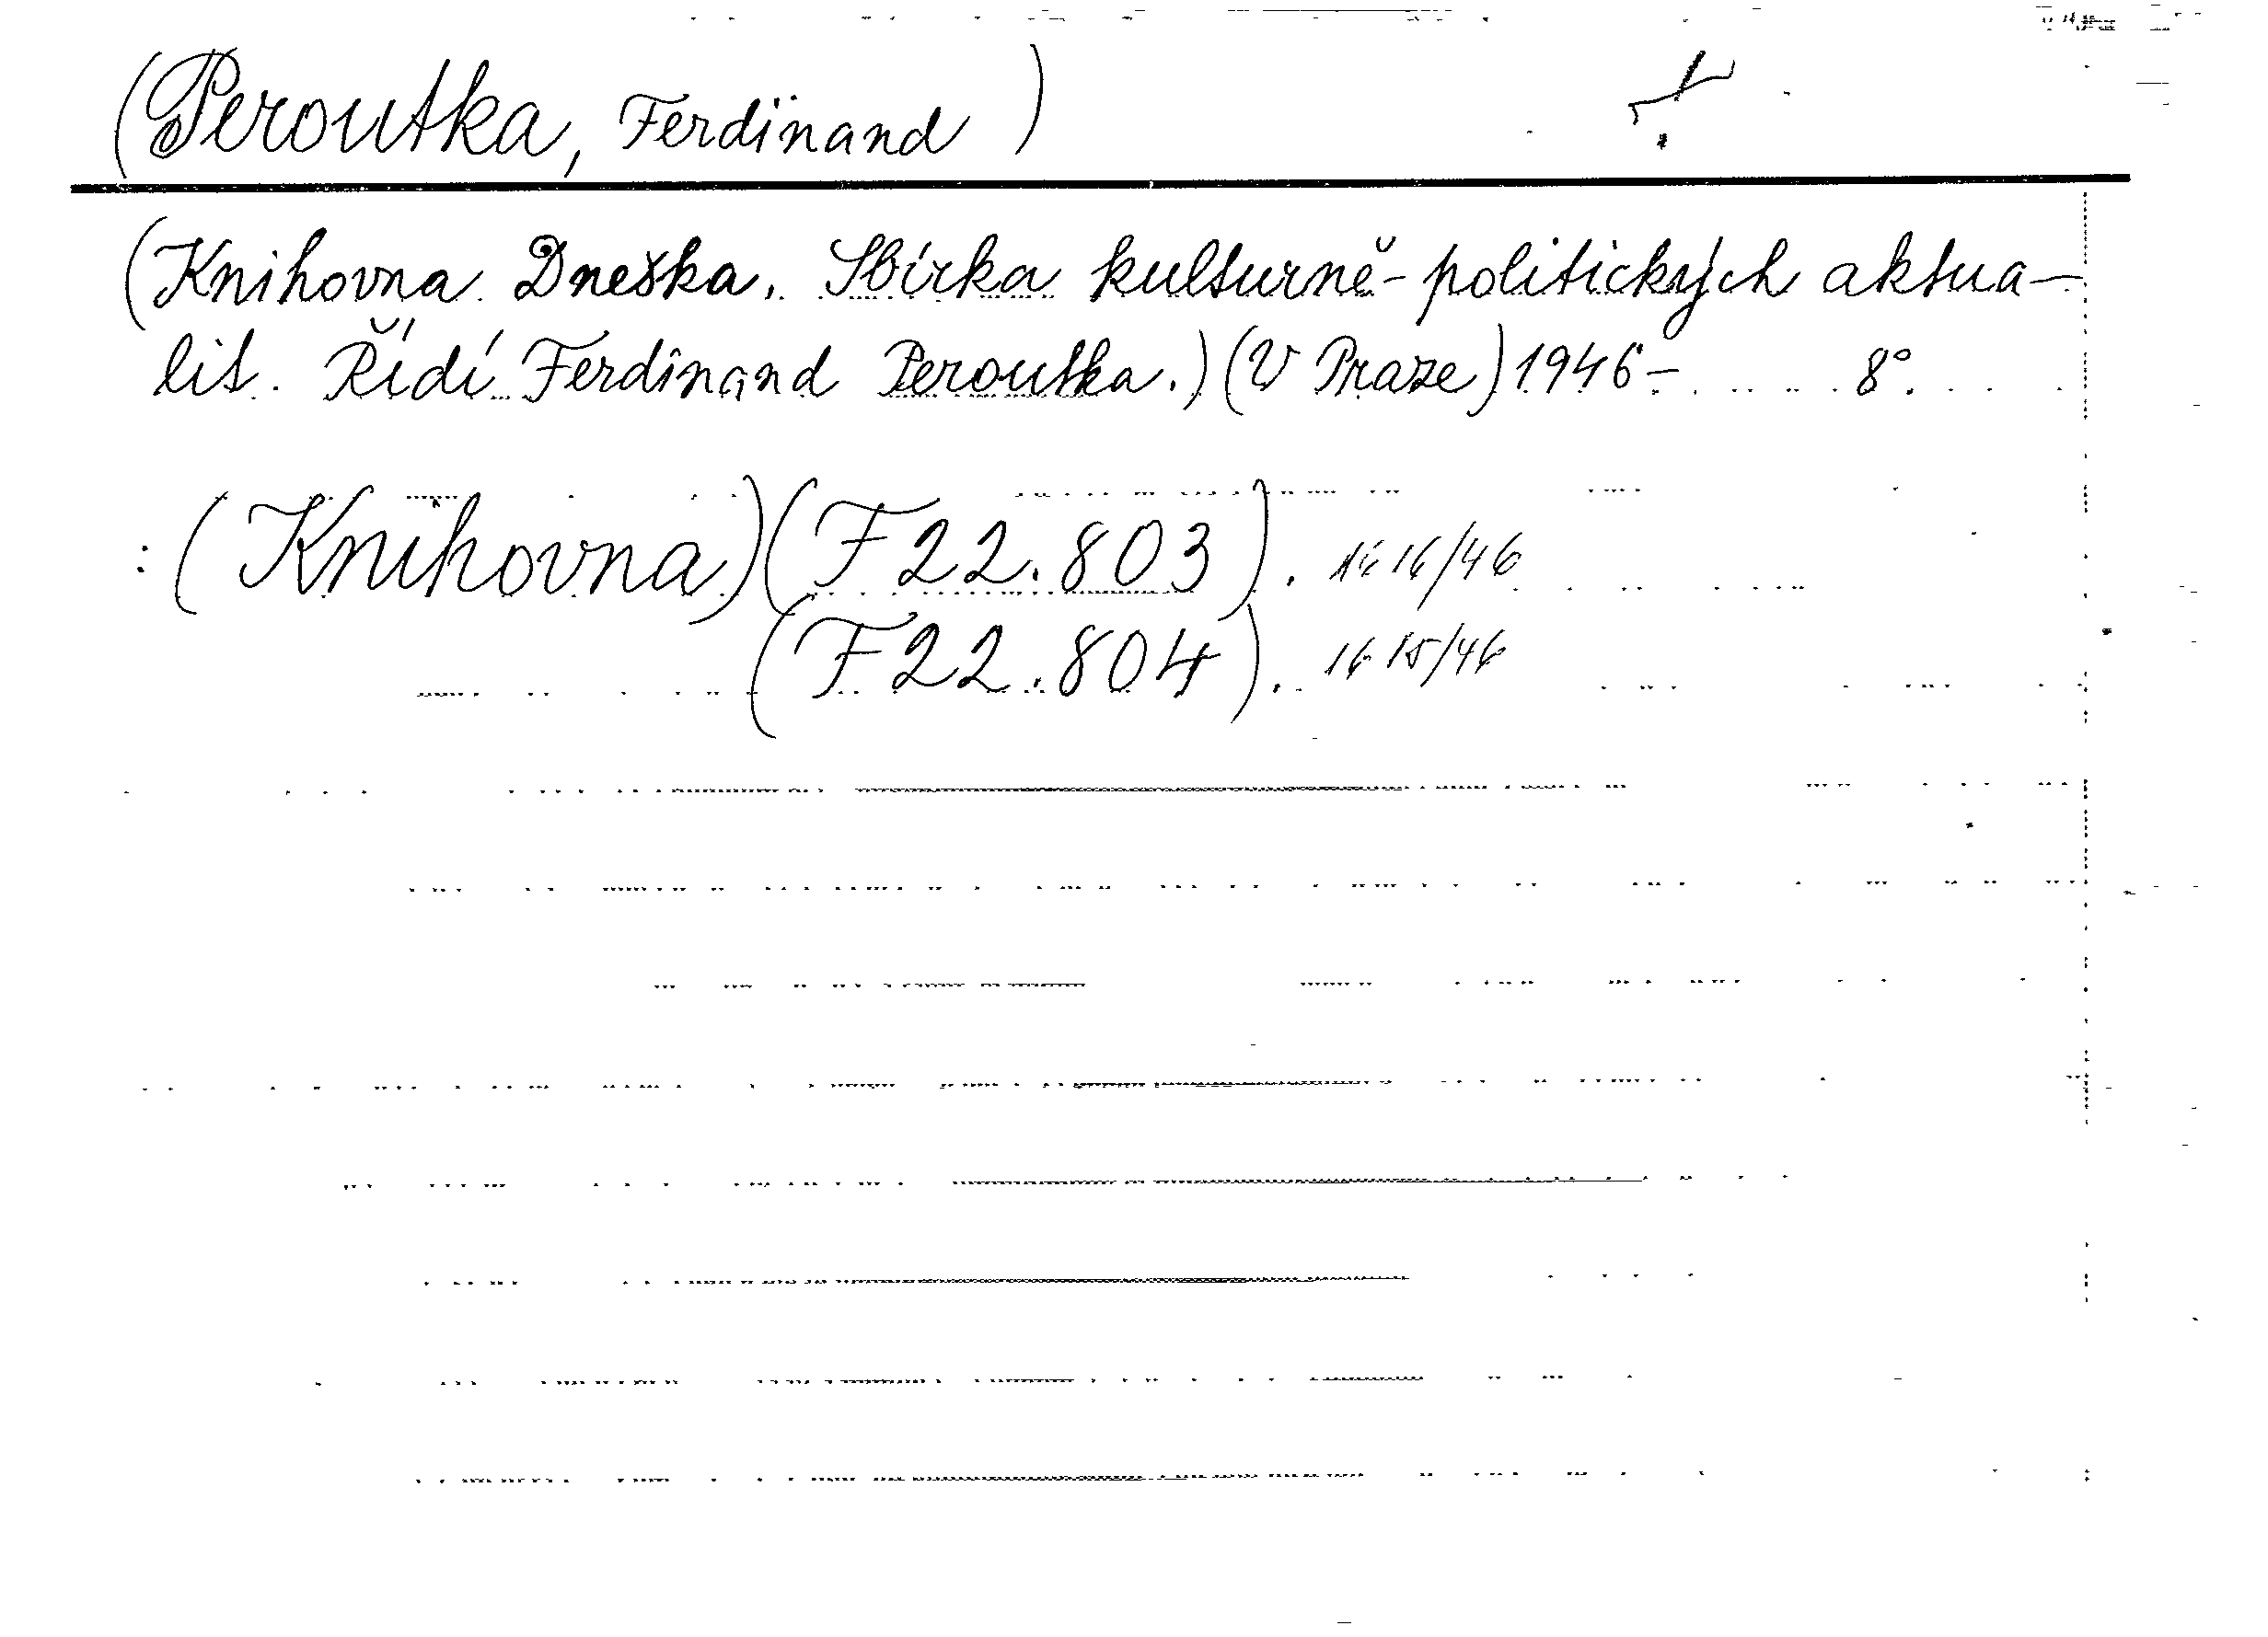 (Peroutka, Ferdinand )
(Knihovna Dneška. Sbírka kulturně-politických aktua-
lit. Řídí Ferdinand Peroutka.) (V Praze) 1946- 8°.
: (Knihovna) (F 22.803). 16/46
(F 22.804). 16 15/46